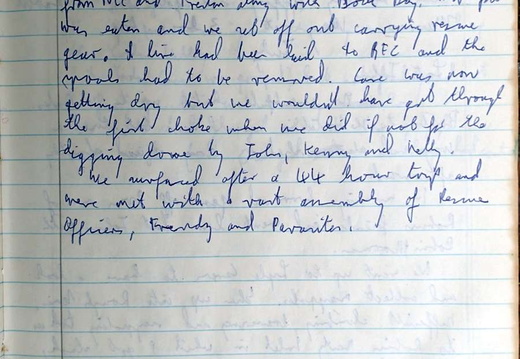 from and along with Boss Day.
was eaten and we set off out carrying rescue
gear. A line had been laid to RFC and the
spools had to be removed. Cave was now
getting dry but we wouldn't have got through
the first choke when we did if not for the
digging done by John, Kenny and Nelly.
We surfaced after a 44 hour trip and
were met with a vast assembly of Rescue
Officers, Friends and Parasites.